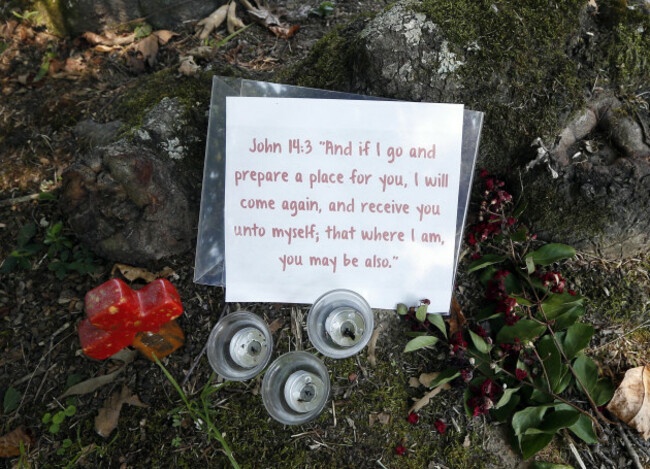 John 14:3 "And if I go and
prepare a place for you, I will
come again, and receive you
unto myself; that where I am,
you may be also."